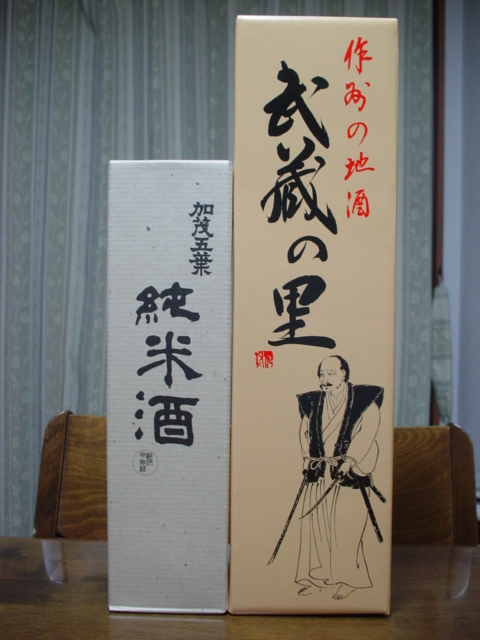 作州の地酒
武蔵の里
加茂五葉
純米酒